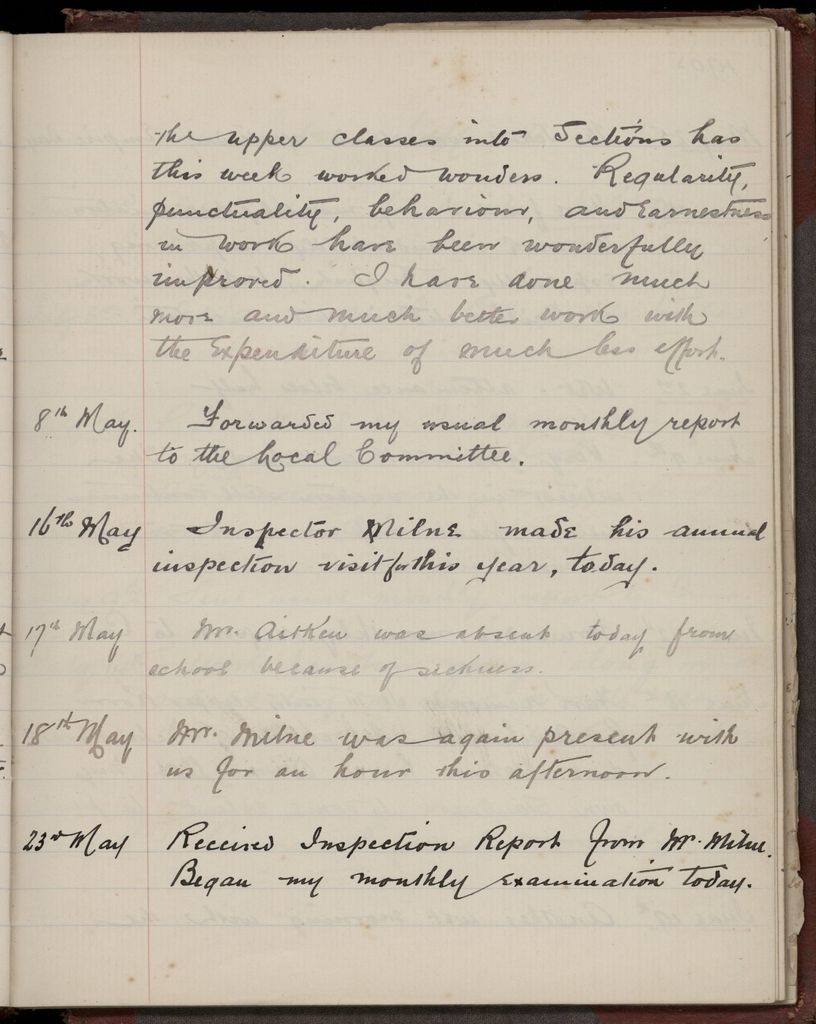 the upper classes into Sections has
this week worked wonders. Regularity,
punctuality, behaviour, and Earnestness
in work have been wonderfully
improved. I have done much
more and much better work with
the Expenditure of much less effort.
8th May. Forwarded my usual monthly report
to the Local Committee.
16th May Inspector Milne made his annual
inspection visit for this year, today.
17th May Mr. Aitken was absent today from
school because of sickness.
18th May Mr. Milne was again present with
us for an hour this afternoon.
23rd May Received Inspection Report from Mr. Milne.
Began my monthly Examination today.